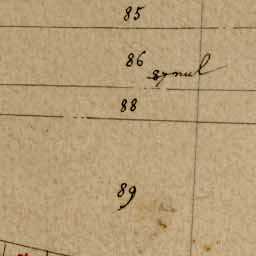 85
86
88
89